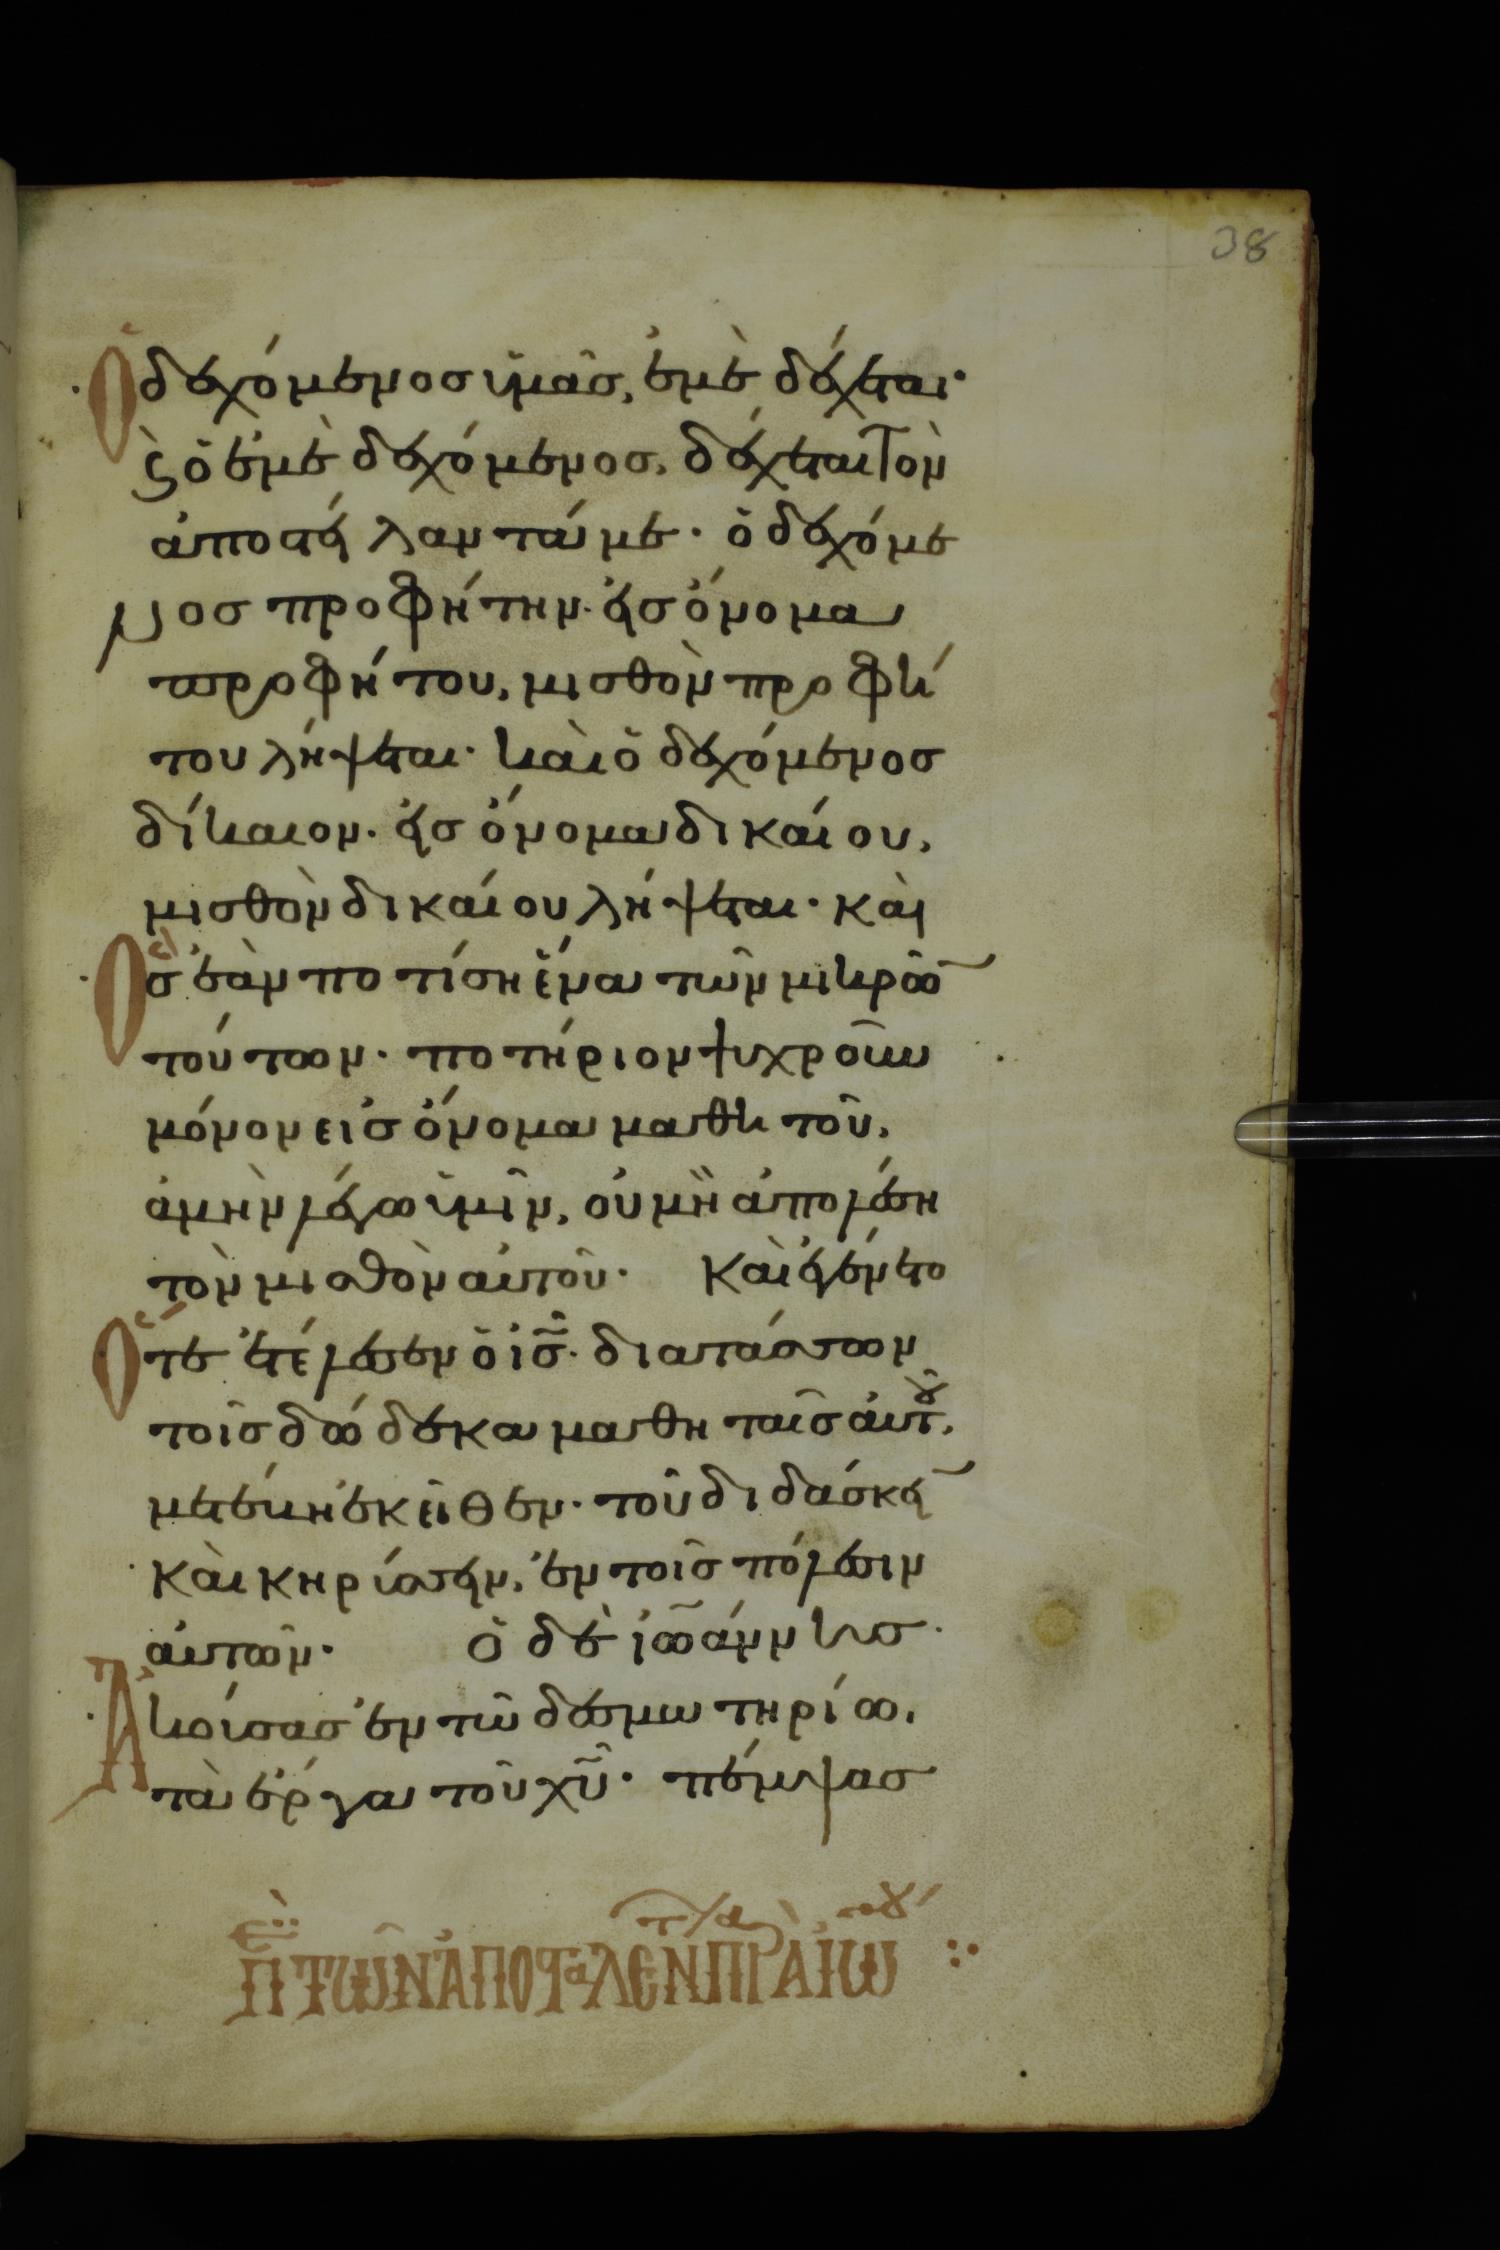 38
Ὁ δεχόμενοσ ὑμᾶσ, ἐμὲ δέχεται·
ϗ ὁ ἐμὲ δεχόμενοσ, δέχεται τὸν
ἀποστείλαντά με· ὁ δεχόμε
νοσ προφήτην· εἰσ ὄνομα
προφήτου, μισθὸν προφή
του λήψεται· καὶ ὁ δεχόμενοσ
δίκαιον· εἰσ ὄνομα δικαίου,
μισθὸν δικαίου λήψεται· καὶ
Ὃσ ἐὰν ποτίση ἕνα τῶν μικρῶ
τούτων· ποτήριον ψυχροῦ
μόνον εἰσ ὄνομα μαθητοῦ,
ἀμὴν λέγω ὑμῖν, οὐ μὴ ἀπολέση
τὸν μισθὸν αὐτοῦ· Καὶ ἐγένετο
Ὅτε ἐτέλεσεν ὁ ἰσ̅· διατάσσων
τοῖσ δώδεκα μαθηταῖσ αὐτοῦ,
μετέβη ἐκεῖθεν· τοῦ διδάσκει
καὶ κηρύσσειν, ἐν τοῖσ πόλεσιν
αὐτῶν· ὁ δὲ ἰωάννησ·
Ἀκούσασ ἐν τῶ δεσμωτηρίω,
τὰ ἔργα τοῦ χυ̅· πέμψασ
Π ΤῶΝ ἈΠΟϹΤΑΛΕΝΤ ΠΑΡᾺ ἸΩ